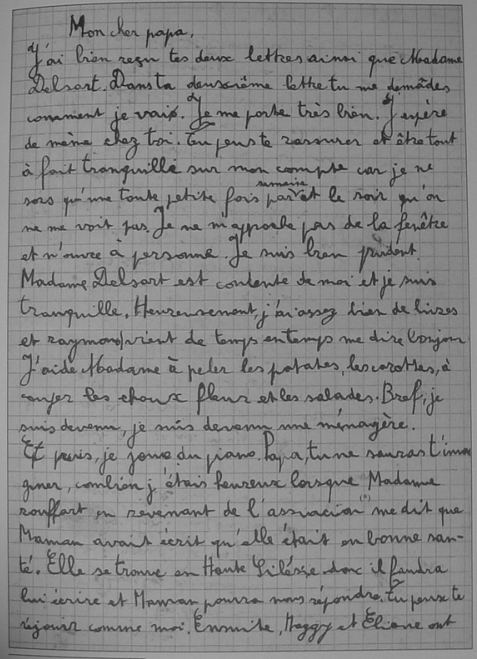 Mon cher papa,
J'ai bien reçu tes deux lettres ainsi que Madame
Delsart. Dans ta deuxième lettre tu me demādes
comment je vais. Je me porte très bien. J'espère
de même chez toi. tu peus te rassurer et être tout
à fait tranquille sur mon compte car je ne
sors qu'une toute petite fois par semaine et le soir qu'on
ne me voit pas. Je ne m'approche pas de la fenêtre
et n'ouvre à personne. Je suis bien prudent.
Madame Delsart est contente de moi et je suis
tranquille. Heureusement, j'ai assez bien de livres
et raymond vient de temps en temps me dire bonjour
J'aide Madame à peler les patates, les carottes, à
les choux fleurs et les salades. Bref, je
suis devenu, je suis devenu une ménagère.
Et puis, je joue du piano. Papa, tu ne sauras t'ima
giner, combien j'étais heureux lorsque Madame
rouffart en revenant de l'association me dit que
Maman avait écrit qu'elle était en bonne san-
té. Elle se trouve en Haute Silésie donc il faudra
lui écrire et Maman pourra nous répondre. tu peux te
réjouir comme moi. Ensuite, Maggy et Eliane ont